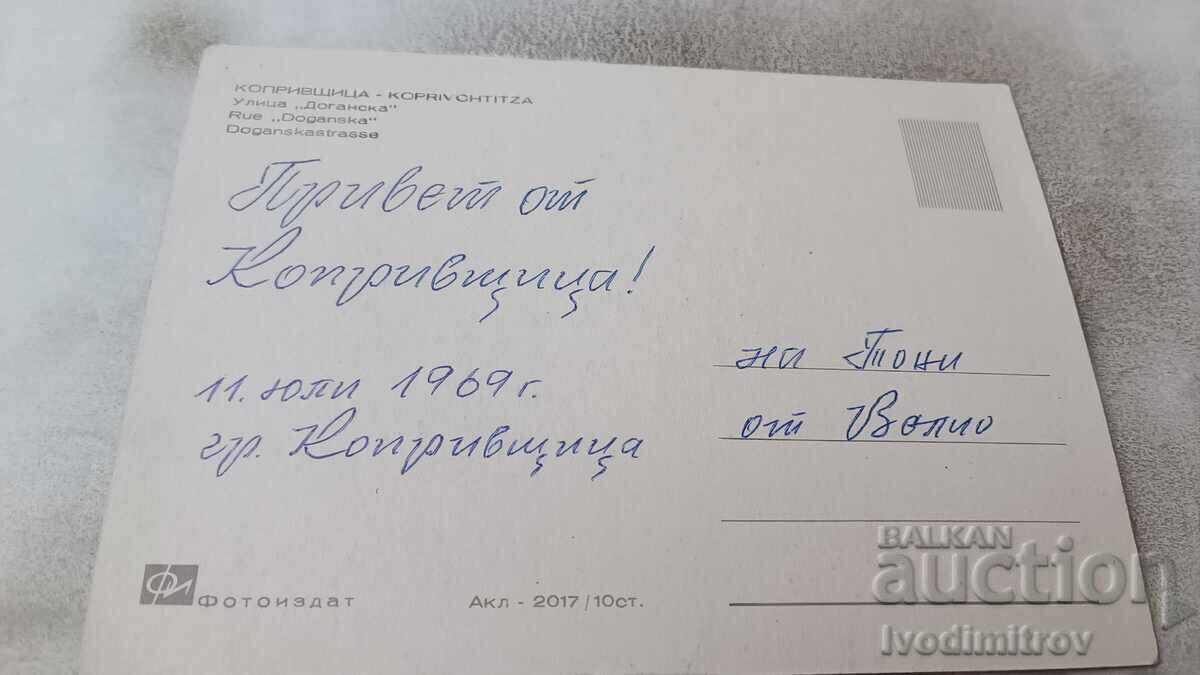 КОПРИВЩИЦА - KOPRIVCHTITZA
Улица „Доганска"
Rue „Doganska"
Doganskastrasse
Привет от
Копривщица!
11. юли 1969 г.
гр. Копривщица
на Тони
от Велио
ФИ Фотоиздат
Акл - 2017/10ст.
BALKAN
auction
Ivodimitrov